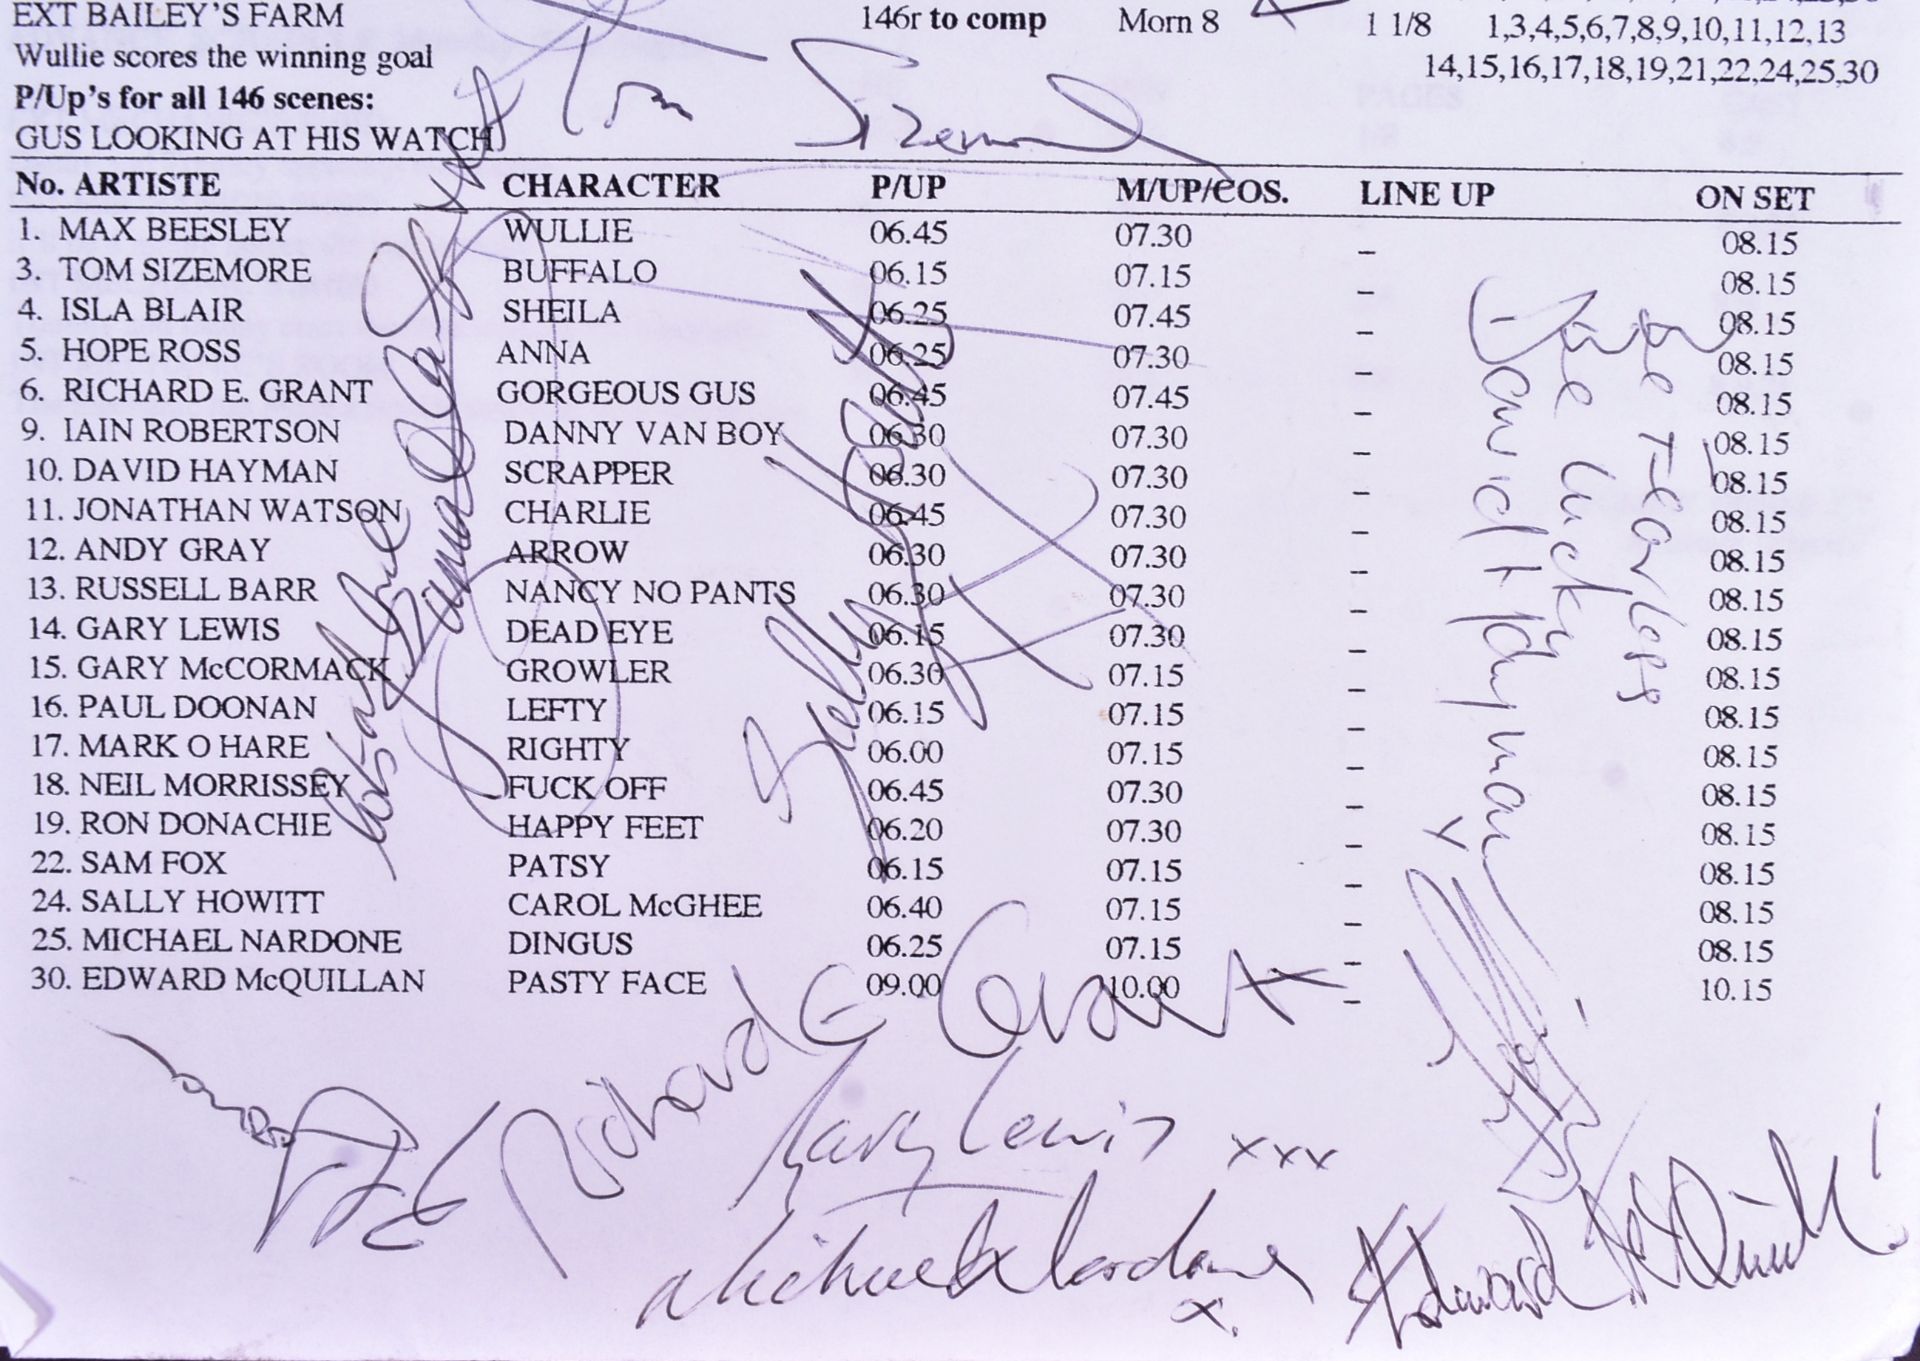 EXT BAILEY'S FARM 146r to comp Morn 8 1 1/8 1,3,4,5,6,7,8,9,10,11,12,13
Wullie scores the winning goal 14,15,16,17,18,19,21,22,24,25,30
P/Up's for all 146 scenes:
GUS LOOKING AT HIS WATCH
Tom Sizemore
No. ARTISTE CHARACTER P/UP M/UP/COS. LINE UP ON SET
1. MAX BEESLEY WULLIE 06.45 07.30 _ 08.15
3. TOM SIZEMORE BUFFALO 06.15 07.15 _ 08.15
4. ISLA BLAIR SHEILA 06.25 07.45 _ 08.15
5. HOPE ROSS ANNA 06.25 07.30 _ 08.15
6. RICHARD E. GRANT GORGEOUS GUS 06.45 07.45 _ 08.15
9. IAIN ROBERTSON DANNY VAN BOY 06.30 07.30 _ 08.15
10. DAVID HAYMAN SCRAPPER 06.30 07.30 _ 08.15
11. JONATHAN WATSON CHARLIE 06.45 07.30 _ 08.15
12. ANDY GRAY ARROW 06.30 07.30 _ 08.15
13. RUSSELL BARR NANCY NO PANTS 06.30 07.30 _ 08.15
14. GARY LEWIS DEAD EYE 06.15 07.30 _ 08.15
15. GARY McCORMACK GROWLER 06.30 07.15 _ 08.15
16. PAUL DOONAN LEFTY 06.15 07.15 _ 08.15
17. MARK O HARE RIGHTY 06.00 07.15 _ 08.15
18. NEIL MORRISSEY FUCK OFF 06.45 07.30 _ 08.15
19. RON DONACHIE HAPPY FEET 06.20 07.30 _ 08.15
22. SAM FOX PATSY 06.15 07.15 _ 08.15
24. SALLY HOWITT CAROL McGHEE 06.40 07.15 _ 08.15
25. MICHAEL NARDONE DINGUS 06.25 07.15 _ 08.15
30. EDWARD McQUILLAN PASTY FACE 09.00 10.00 _ 10.15
Sally Howitt
Be Fearless
Be Lucky
David Hayman
x
Richard E. Grant
Gary Lewis xxx
Michael Nardone
x.
Edward McQuill